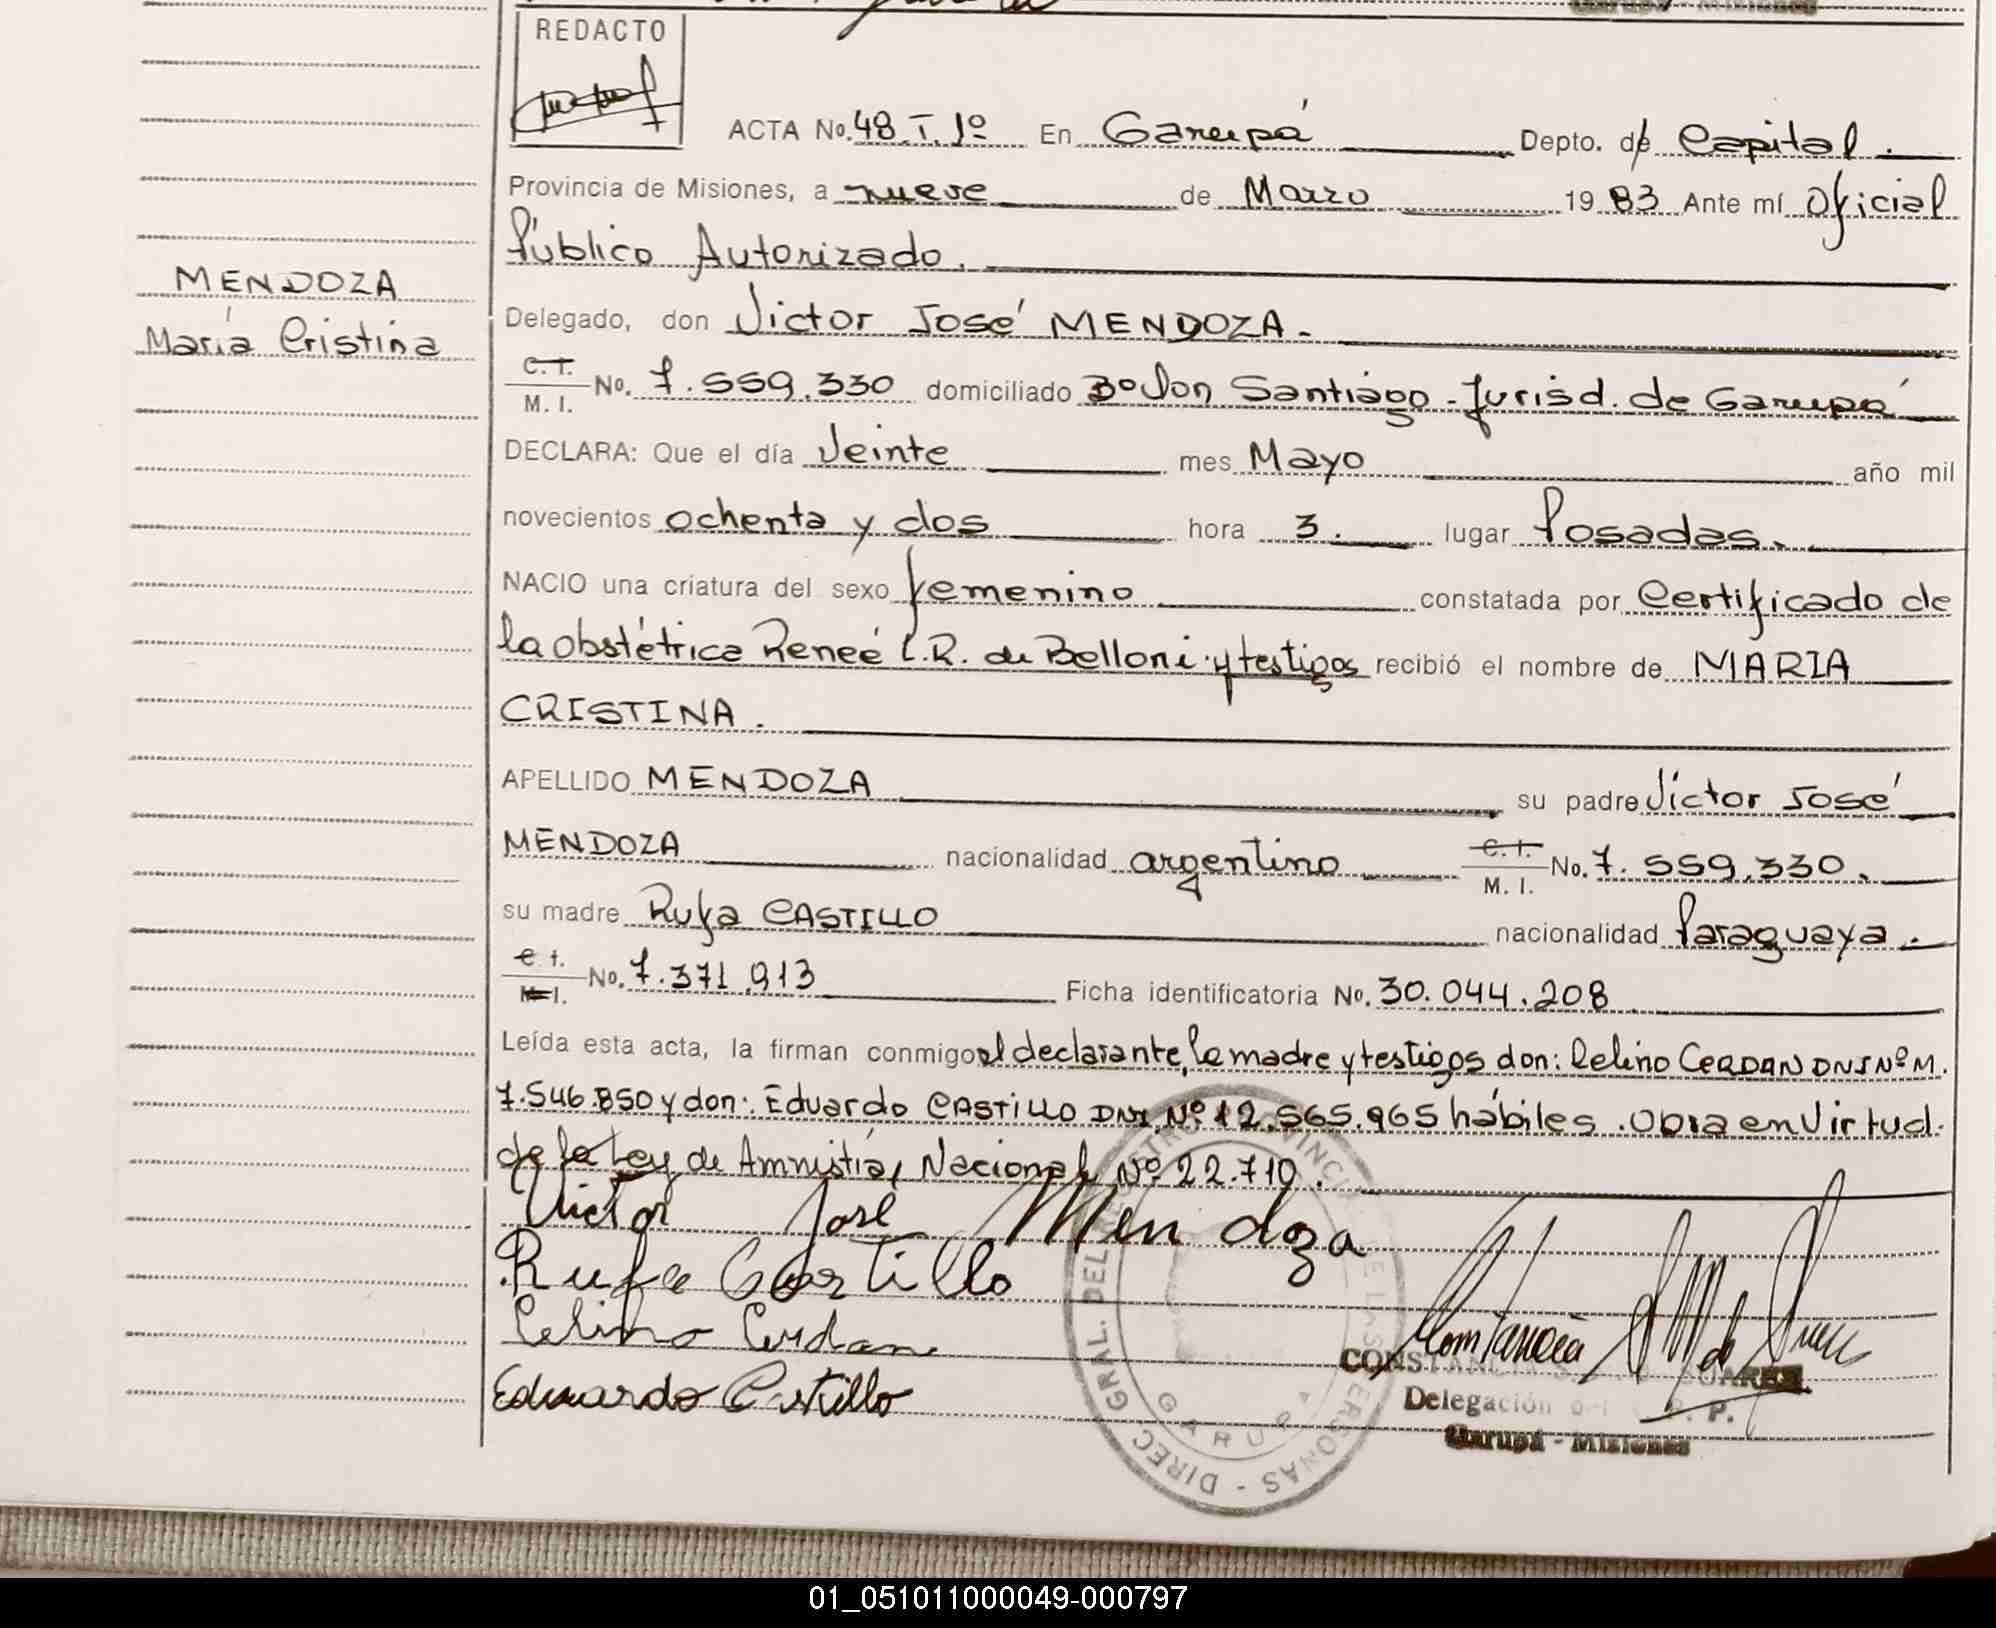 Garupá - Misiones
REDACTO
ACTA No. 48 T. 1º En Garupá Depto. de Capital.
Provincia de Misiones, a nueve de Marzo 19 83 Ante mí Oficial
Público Autorizado.
MENDOZA
María Cristina
Delegado, don Victor José MENDOZA.
C.I. M. I. No. 7.559.330 domiciliado Bº Don Santiago - Jurisd. de Garupá
DECLARA: Que el día Veinte mes Mayo año mil
novecientos ochenta y dos hora 3. lugar Posadas.
NACIO una criatura del sexo femenino constatada por Certificado de
la obstétrica Reneé L.R. de Belloni y testigos recibió el nombre de MARIA
CRISTINA.
APELLIDO MENDOZA su padre Victor José
MENDOZA nacionalidad argentino C.I. M. I. No. 7.559.330.
su madre Rufa CASTILLO nacionalidad Paraguaya.
C.I. M.I. No. 7.371.913 Ficha identificatoria No. 30.044.208
Leída esta acta, la firman conmigo el declarante, la madre y testigos don: Celino CERDAN DNI Nº M.
7.546.850 y don: Eduardo CASTILLO DNI. Nº 12.565.965 hábiles. Obra en Virtud.
de la Ley de Amnistía, Nacional Nº 22.710.
Victor José Mendoza
Rufa Castillo
Celino Cerdan
Eduardo Castillo
DIREC. GRAL. DEL REGISTRO PROVINCIAL DE LAS PERSONAS -
GARUPA
CONSTANCIA SUAREZ
Delegación del R. P. P.
Garupá - Misiones
01_051011000049-000797